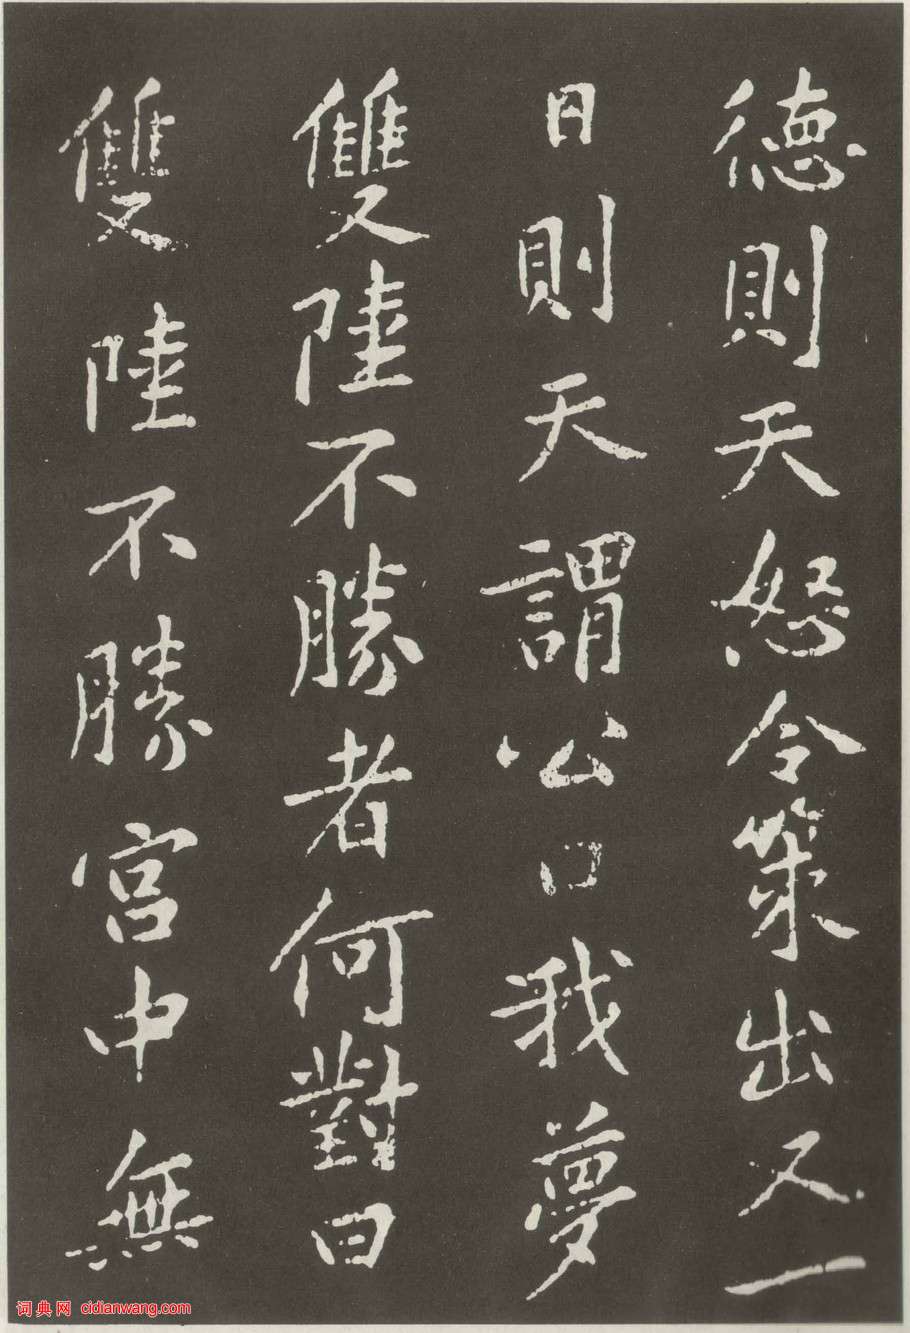 德則天怒令策出又一
日則天謂公曰我夢
雙陸不勝者何對曰
雙陸不勝宮中無
词典网 cidianwang.com